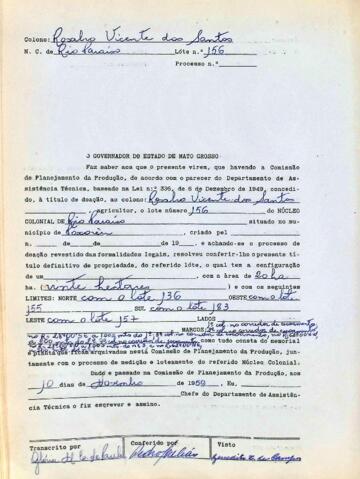 Colono: Rosalvo Vicente dos Santos
N. C. de Rio Paraiso Lóte n.º 156
Processo n.º
O GOVERNADOR DO ESTADO DE MATO GROSSO
Faz saber aos que o presente virem, que havendo a Comissão
de Planejamento da Produção, de acordo com o parecer do Departamento de As-
sistência Técnica, baseado na Lei n.º 336, de 6 de Dezembro de 1949, concedi-
do, à título de doação, ao colono: Rosalvo Vicente dos Santos
agricultor, o lote número 156 do NÚCLEO
COLONIAL DE Rio Paraiso situado no mu-
nicípio de Poxoréu, criado pel
n. de de 19 e achando-se o processo de
doação revestido das formalidades legais, resolveu conferir-lho o presente tí-
tulo definitivo de propriedade, do referido lóte, o qual tem a configuração
de um , com a área de 20 ha
(vinte hectares) e com os seguintes
LIMITES: NORTE com o lote 136 OESTE com o lote
155 SUL com o lote 183
LESTE com o lote 157
LADOS
MARCOS
como tudo consta do memorial
e planta que ficam arquivados nesta Comissão de Planejamento da Produção, jun-
tamente com o processo de medição e loteamento do referido Núcleo Colonial.
Dado e passado na Comissão de Planejamento da Produção, aos
10 dias de Novembro de 1959. Eu,
Chefe do Departamento de Assistên-
cia Técnica o fiz escrever e assino.
Transcrito por Conferido por Visto